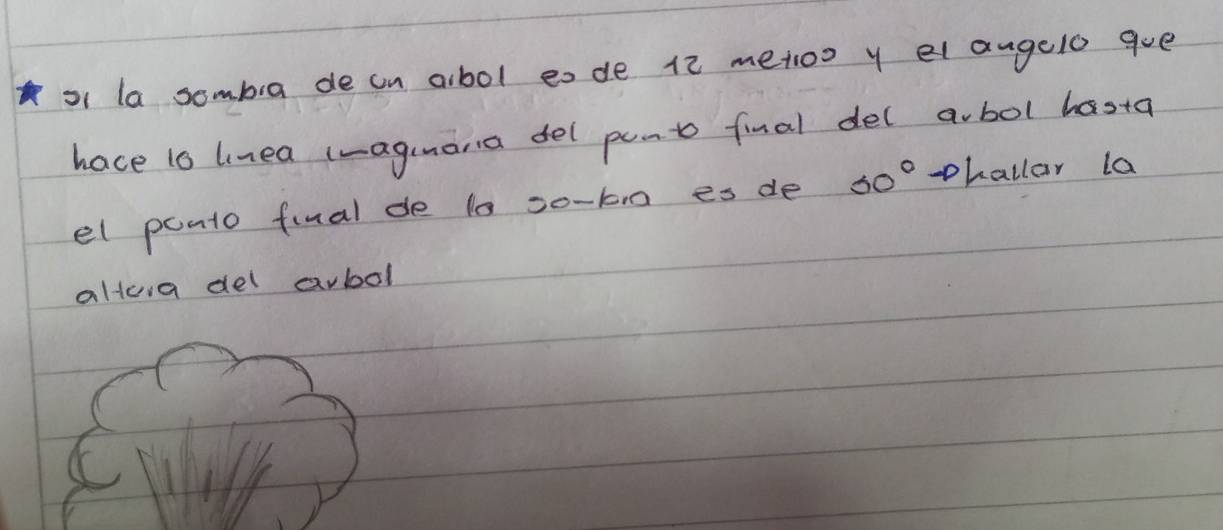 ★ si la sombra de un arbol es de 12 metros y el angulo que
hace la linea imaginaria del punto final del arbol hasta
el punto final de la sombra es de → hallar la
altura del arbol